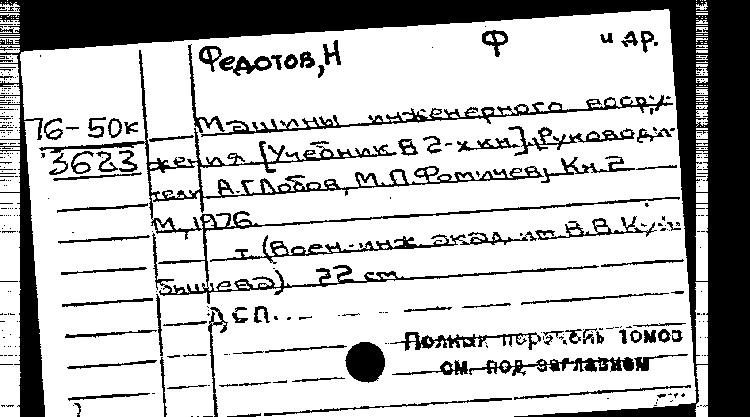 Федотов, Н Ф и др.
76-50к
3623
Машины инженерного воору-
жения [Учебник В 2-х кн.]. Руководи-
тели А.Г. Лобов, М.П. Фомичев, Кн. 2
М., 1976.
т. (Воен.-инж. акад. им В.В. Куй-
бышева). 22 см.
ДСП...
Полный перечень томов
см. под заглавием